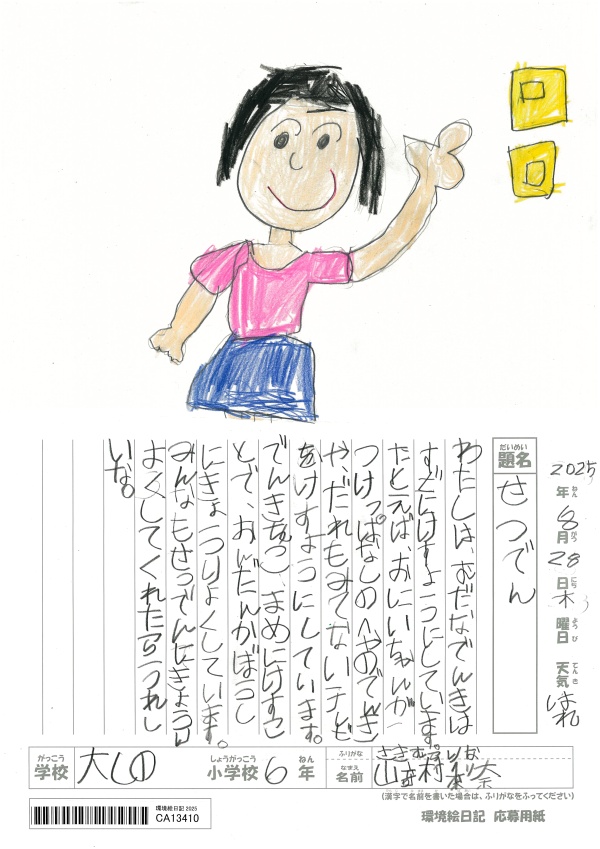 2025
年 8月 28日 木曜日 天気 はれ
ねん がつ にち ようび てんき
だいめい
題名
せつでん
わたしは、むだなでんきは
すぐにけすようにしています。
たとえば、おにいちゃんが
つけっぱなしのへやのでんき
や、だれもみてないテレビ
をけすようにしています。
でんきをこまめにけすこ
とで、おんだんかぼうし
にきょうりょくしています。
みんなもせつでんにきょうり
よくしてくれたらうれし
いな。
がっこう
学校
しょうがっこう
小学校 6 ねん 年
ふりがな
なまえ
名前
(漢字で名前を書いた場合は、ふりがなをふってください)
環境絵日記 2025
CA13410
環境絵日記 応募用紙